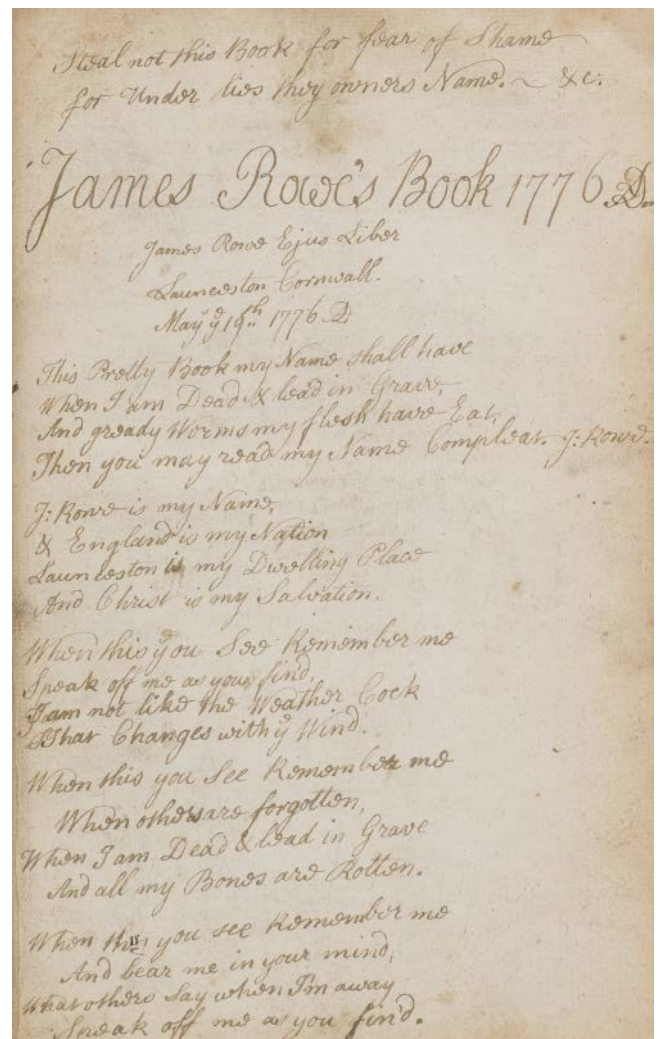 Steal not this Book for fear of Shame
for Under lies they owners Name. ~ &c.
James Rowe's Book 1776 AD.
James Rowe Ejus Liber
Launceston Cornwall.
May ye 19th 1776 AD
This Pretty Book my Name shall have
When I am Dead & lead in Grave,
And gready Worms my flesh have Eat,
Then you may read my Name Compleat. J: Rowe.
J: Rowe is my Name,
& England is my Nation
Launceston is my Dwelling Place
And Christ is my Salvation.
When this you See Remember me
Speak off me as your find,
I am not like the Weather Cock
That Changes with ye Wind.
When this you See Remember me
When others are forgotten,
When I am Dead & lead in Grave
And all my Bones are Rotten.
When this you see Remember me
And bear me in your mind,
What others Say when I'm away
Speak off me as you find.